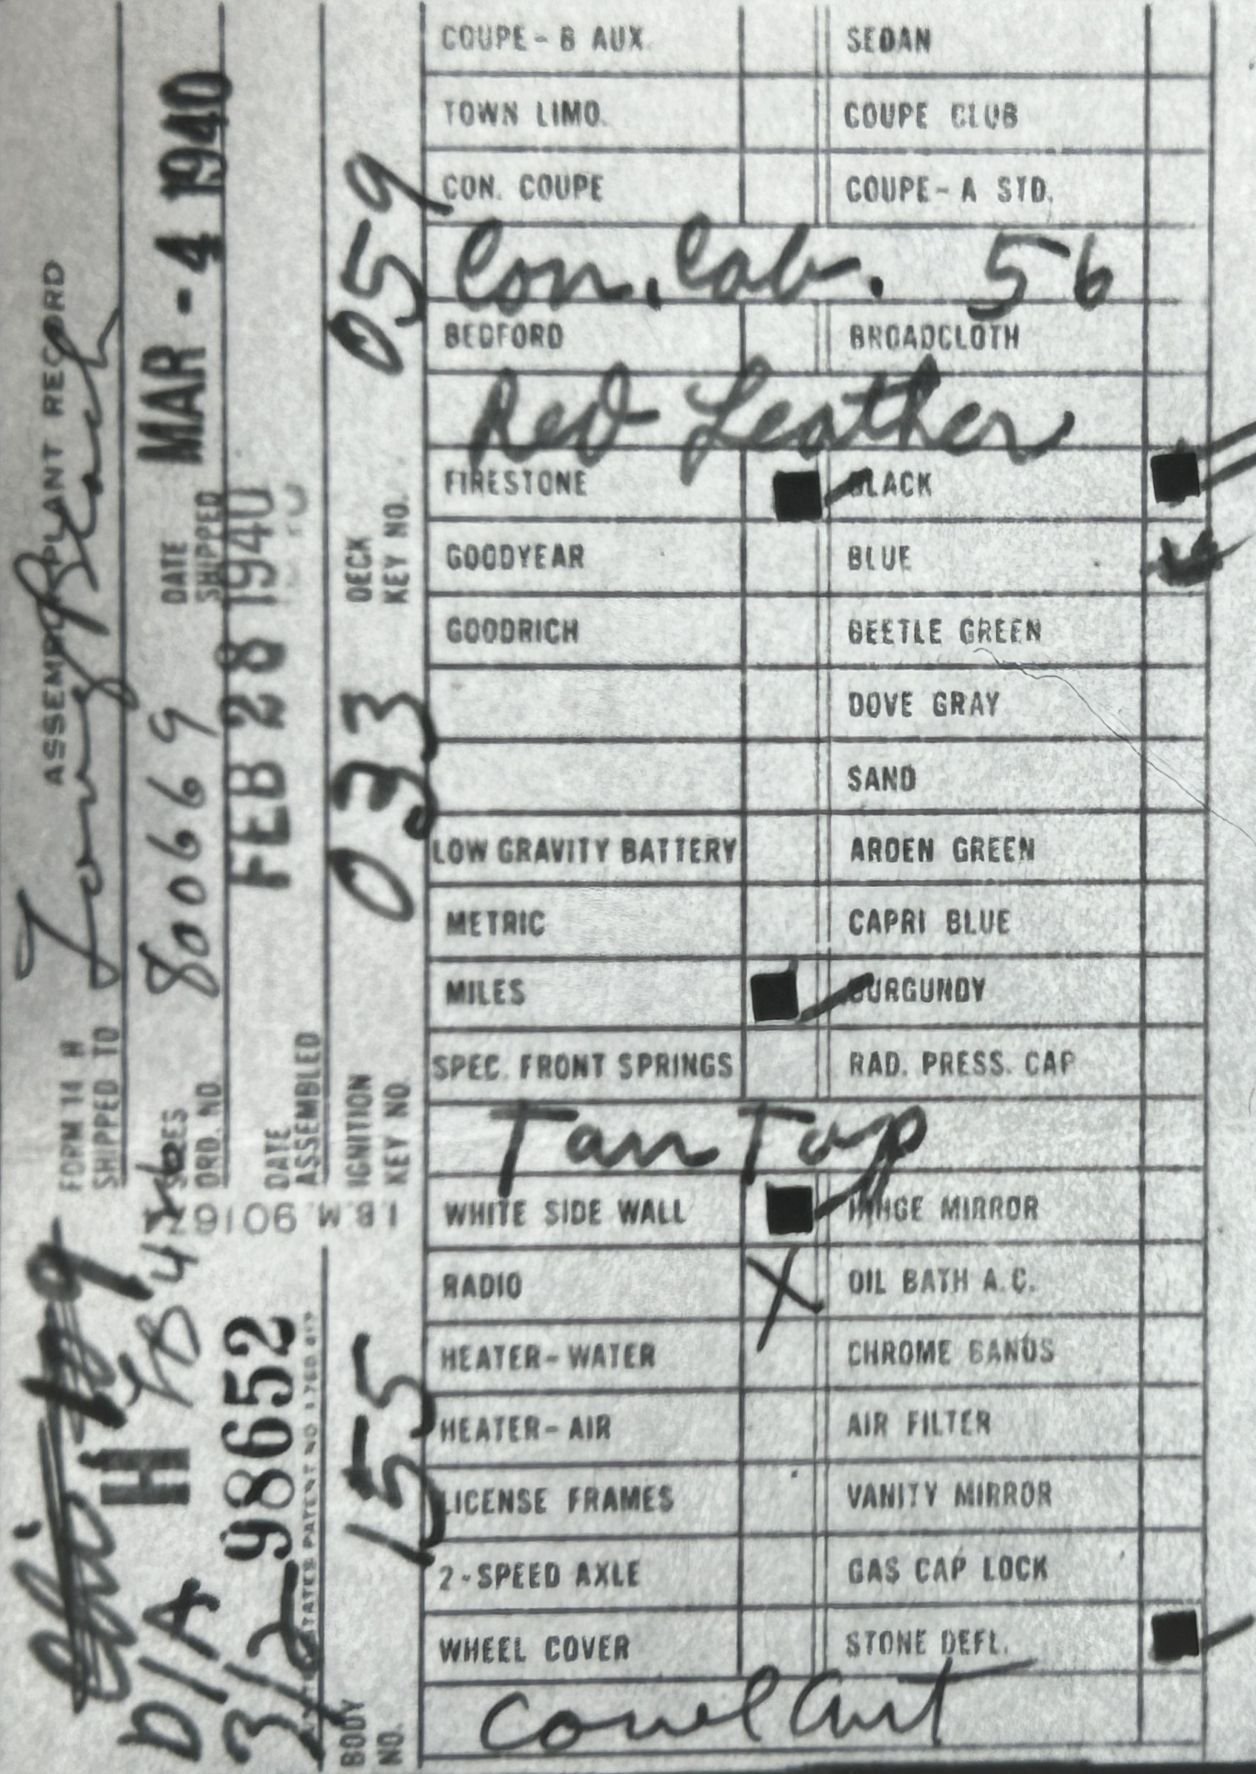 ASSEMBLY PLANT RECORD
FORM 14 H
SHIPPED TO Long Beach
SALES
ORD. NO. 80669
DATE
SHIPPED MAR - 4 1940
DATE
ASSEMBLED FEB 28 1940
IGNITION
KEY NO. 033
DECK
KEY NO. 059
I.B.M. 90169
H
D/A
98652
BODY
NO. 155
COUPE - B AUX. SEDAN
TOWN LIMO. COUPE CLUB
CON. COUPE COUPE - A STD.
Con. Cab. 56
BEDFORD BROADCLOTH
Red Leather
FIRESTONE BLACK
GOODYEAR BLUE
GOODRICH BEETLE GREEN
DOVE GRAY
SAND
LOW GRAVITY BATTERY ARDEN GREEN
METRIC CAPRI BLUE
MILES BURGUNDY
SPEC. FRONT SPRINGS RAD. PRESS. CAP
Tan Top
WHITE SIDE WALL HINGE MIRROR
RADIO X OIL BATH A.C.
HEATER - WATER CHROME BANDS
HEATER - AIR AIR FILTER
LICENSE FRAMES VANITY MIRROR
2 - SPEED AXLE GAS CAP LOCK
WHEEL COVER STONE DEFL.